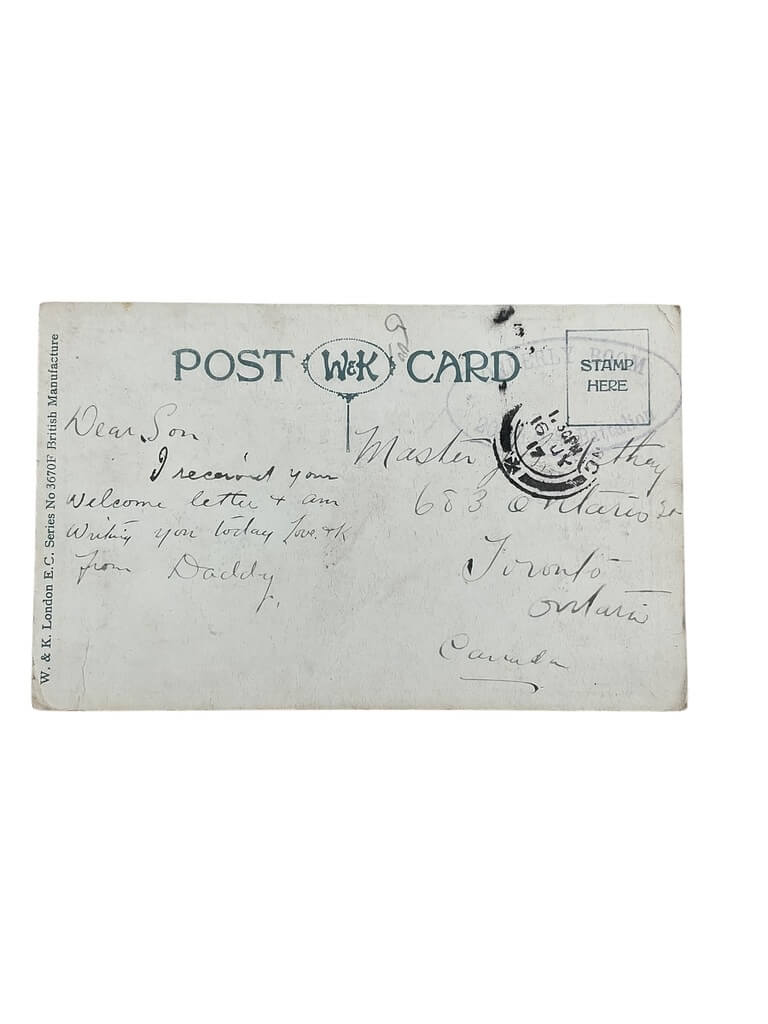 W. & K. London E.C. Series No 3670F British Manufacture
POST W&K CARD
STAMP
HERE
ORDLY ROOM
1.30PM
16 JY
17
Dear Son
I received your
welcome letter & am
writing you today Love. &K
from Daddy
Master
683 Ontario St
Toronto
Ontario
Canada